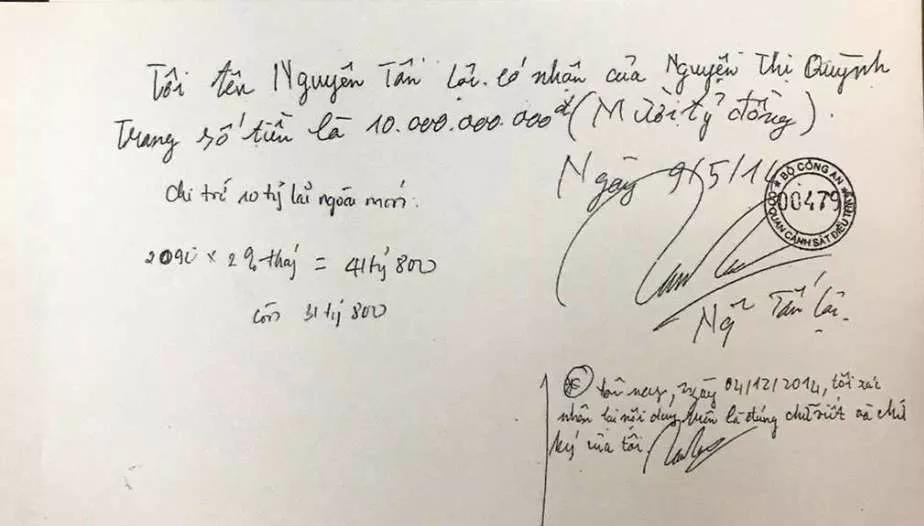 Tôi tên Nguyễn Tấn Lợi. Có nhận của Nguyễn Thị Quỳnh
Trang số tiền là 10.000.000.000đ (Mười tỷ đồng).
Ngày 9/5/14
BỘ CÔNG AN
00479
CƠ QUAN CẢNH SÁT ĐIỀU TRA
Chi trả 10 tỷ lãi ngoài
2090 × 2% tháj = 41 tỷ 800
còn 31 tỷ 800
Ng Tấn Lợi.
Hôm nay, ngày 04/12/2014, tôi xác
nhận lại nội dung trên là đúng chữ viết và chữ
ký của tôi